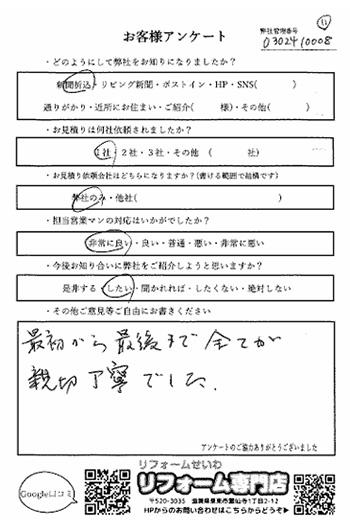 ⑪
お客様アンケート
弊社管理番号
0302410008
・どのようにして弊社をお知りになりましたか？
新聞折込・リビング新聞・ポストイン・HP・SNS(　　　)
通りがかり・近所にお住まい・ご紹介(　　　様)・その他(　　　)
・お見積りは何社依頼されましたか？
1社・2社・3社・その他　(　　　社)
・お見積り依頼会社はどちらになりますか？(書ける範囲で結構です)
弊社のみ・他社(　　　)
・担当営業マンの対応はいかがでしたか？
非常に良い・良い・普通・悪い・非常に悪い
・今後お知り合いに弊社をご紹介しようと思いますか？
是非する・したい・聞かれれば・したくない・絶対しない
・その他ご意見等ご自由にお書きください
最初から最後まで全てが
親切丁寧でした.
アンケートのご協力ありがとうございました
Google口コミ
リフォームせいわ
リフォーム専門店
〒520-3035　滋賀県栗東市霊仙寺1丁目2-12
HPからのお問い合わせはこちらからどうぞ▶